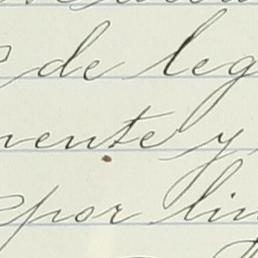 de leg
mente y
por lin